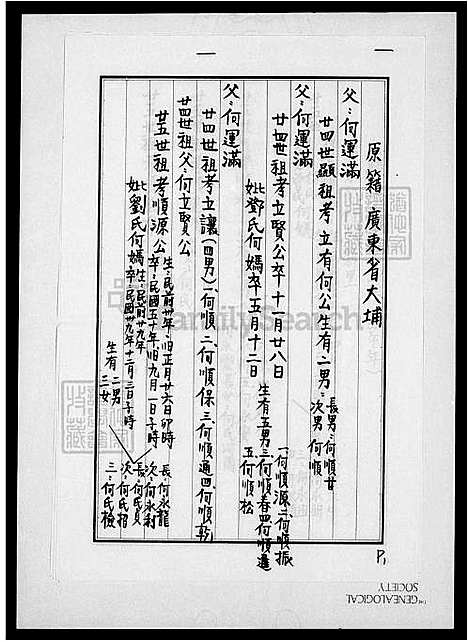 原籍 廣東省大埔
父：何運滿
廿四世顯祖考 立有何公生有二男：長男：何順廿
次男 何順
父：何運滿
廿四世祖考立賢公卒十一月廿八日
妣鄧氏何媽卒五月十二日
生有五男 一、何順源 二、何順振
三何順春 四何順進
五何順松
父：何運滿
廿四世祖考立讓(四男)一、何順 二、何順保 三、何順通 四、何順乾
廿四世祖父：何立賢公
廿五世祖考順源公 生：民前廿年旧正月廿六日卯時
卒：民國五十年旧九月一日子時
妣劉氏何媽 生：民前廿九年
卒：民國廿九年十二月三日子時
生有 二男
三女
長：何永龍
次：何永利
長：何氏貞
次：何氏招
三：何氏檢
P1
THE GENEALOGICAL
SOCIETY
FamilySearch